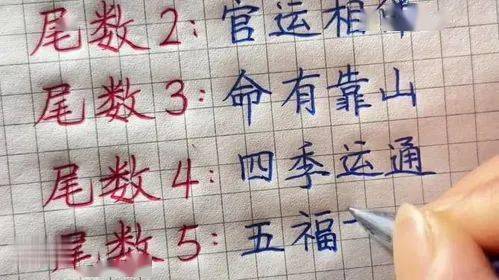 尾数2:官运相
尾数3:命有靠山
尾数4:四季运通
尾数5:五福